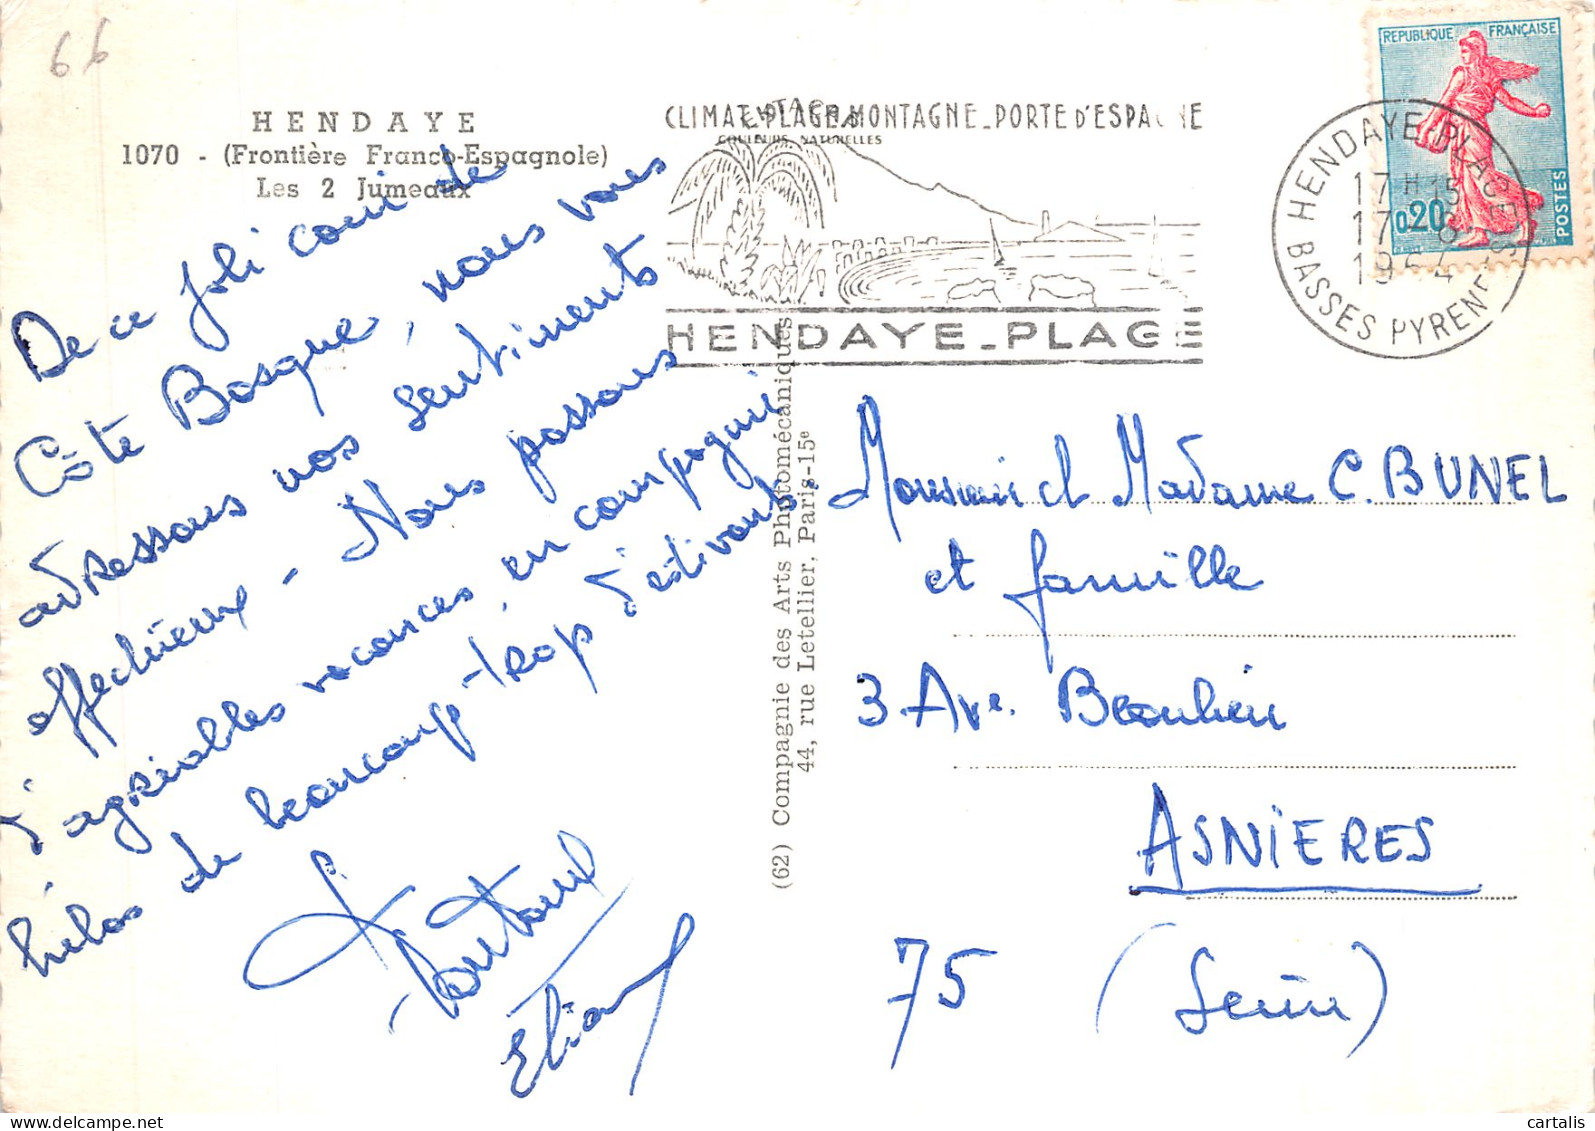 66
HENDAYE
1070 - (Frontière Franco-Espagnole)
Les 2 Jumeaux
COULEURS NATURELLES
CLIMAT_PLAGE_MONTAGNE_PORTE D'ESPAGNE
HENDAYE_PLAGE
REPUBLIQUE FRANÇAISE
0,20
POSTES
HENDAYE-PLAGE
17 H 15
17 - 8
1964
BASSES PYRENEES
De ce joli coin de
Côte Basque, nous vous
adressons nos sentiments
affectueux - Nous passons
d'agréables vacances, en compagnie
hélas de beaucoup-trop d'estivants.
Eliane
(62) Compagnie des Arts Photomécaniques
44, rue Letellier, Paris-15e
Monsieur et Madame C. BUNEL
et famille
3 Ave. Beaulieu
ASNIERES
75 (Seine)
cartalis